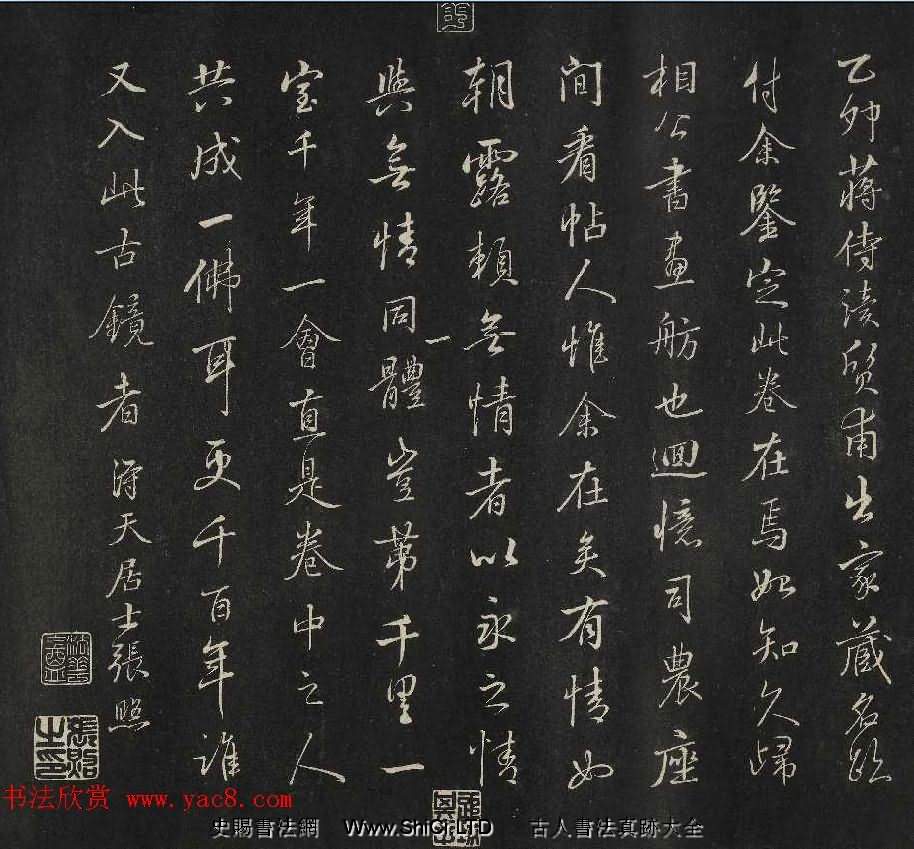 乙卯蔣侍讀質甫出家藏名跡
付余鑒定此卷在焉始知久歸
相公書畫舫也迴憶司農座
間看帖人惟余在矣有情如
朝露賴無情者以永之情
與無情同一體豈第千里一
室千年一會直是卷中之人
共成一佛耳更千百年誰
又入此古鏡者 得天居士張照
張照之印
书法欣赏 www.yac8.com
史賜書法網 Www.ShiCi.LTD 古人書法真跡大全